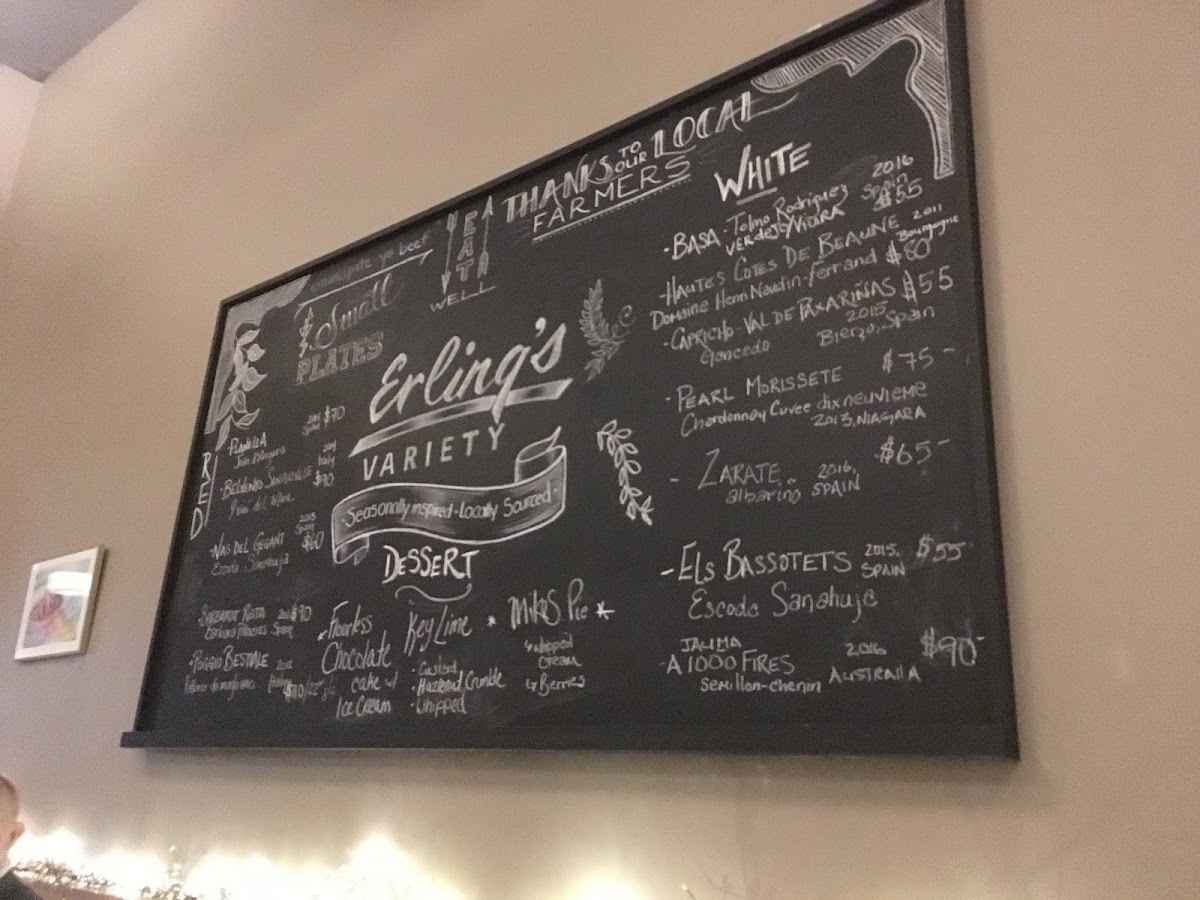 THANKS TO OUR LOCAL
FARMERS
EAT
WELL
yo beef
Small
PLATES
Erling's
VARIETY
Seasonally inspired · Locally Sourced ·
RED
$70
Spain
- BELVENTO SANGIOVESE
Italy
$90
- NAS DEL GEGANT 2013
Spain
$60
Escoda Sanahuja
$90
Spain
- POGGIO BESTIALE
DESSERT
Flourless
Chocolate
cake w/
Ice Cream
Key Lime
- Custard
- Hazelnut Crumble
- Whipped
* Mike's Pie *
↳ whipped
cream
↳ Berries
WHITE
- BASA - Telmo Rodriguez 2016
VERdejo/VIURA Spain $55
- HAUTES COTES DE BEAUNE 2011
Bourgogne
Domaine Henri Naudin-Ferrand $80
- CAPRICHO VAL DE PAXARIÑAS $55
2015
Gancedo Bierzo, Spain
- PEARL MORISSETE $75-
Chardonnay Cuvee dix neuvieme
2013, NIAGARA
- ZARATE 2016, $65-
albarino SPAIN
- ELS BASSOTETS 2015, $55
SPAIN
Escoda Sanahuje
JAUMA
- A 1000 FIRES 2016 $90-
Semillon-chenin AUSTRALIA